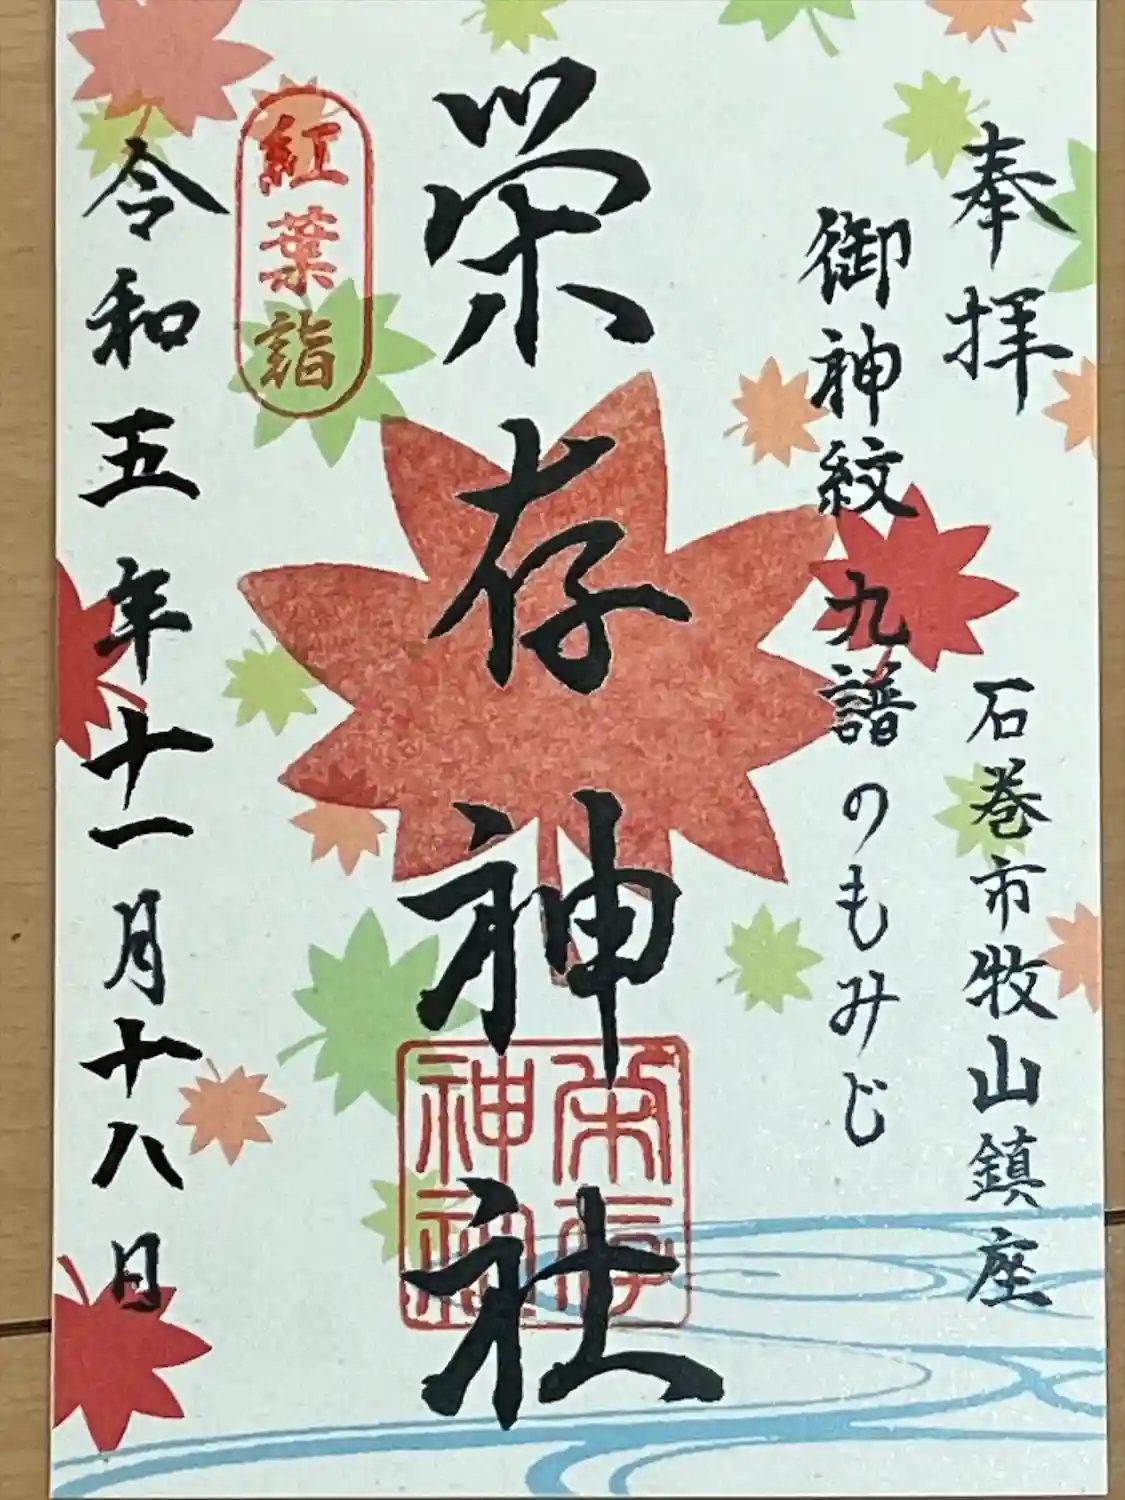 奉拝
石巻市牧山鎮座
御神紋 九譜のもみじ
栄存神社
栄存
神社
紅葉詣
令和五年十一月十八日